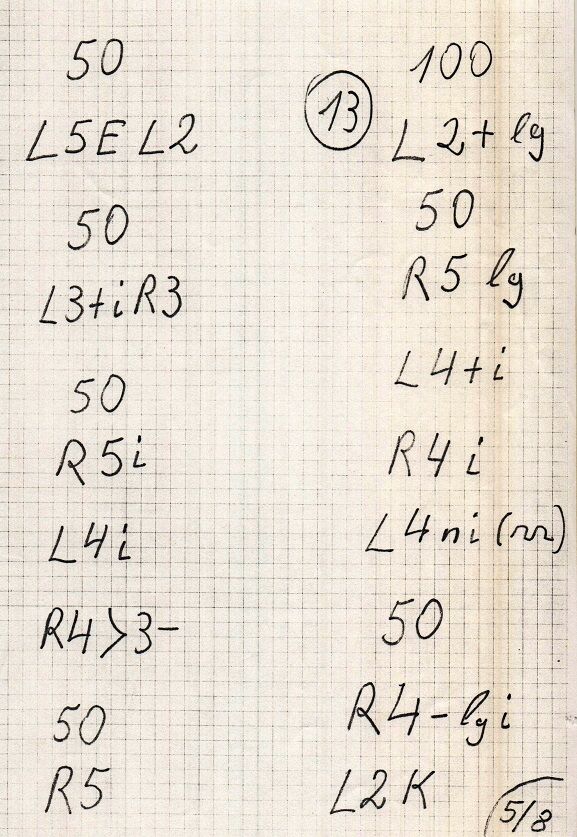 50
L5E L2
50
L3+i R3
50
R5i
L4i
R4>3-
50
R5
13
100
L2+ lg
50
R5 lg
L4+i
R4 i
L4ni (rr)
50
R4- lg i
L2K
5/8